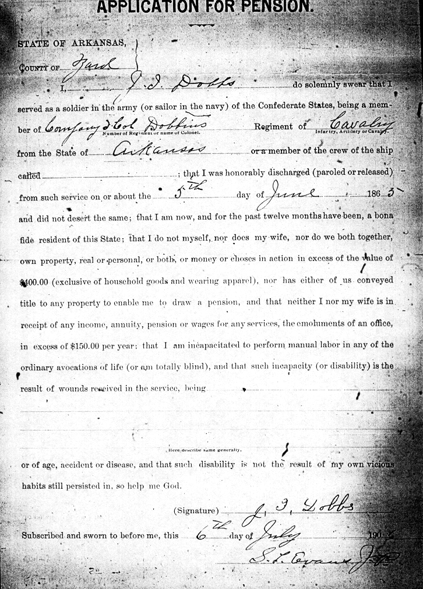 APPLICATION FOR PENSION.
STATE OF ARKANSAS,
COUNTY OF
I, Dobbs do solemnly swear that I
served as a soldier in the army (or sailor in the navy) of the Confederate States, being a mem-
ber of Company Col Dobbins Regiment of Cavalry
Number of Regiment or name of Colonel. Infantry, Artillery or Cavalry.
from the State of Arkansas or a member of the crew of the ship
called ; that I was honorably discharged (paroled or released)
from such service on or about the 5th day of June 1865
and did not desert the same; that I am now, and for the past twelve months have been, a bona
fide resident of this State; that I do not myself, nor does my wife, nor do we both together,
own property, real or personal, or both, or money or choses in action in excess of the value of
$400.00 (exclusive of household goods and wearing apparel), nor has either of us conveyed
title to any property to enable me to draw a pension, and that neither I nor my wife is in
receipt of any income, annuity, pension or wages for any services, the emoluments of an office,
in excess of $150.00 per year: that I am incapacitated to perform manual labor in any of the
ordinary avocations of life (or am totally blind), and that such incapacity (or disability) is the
result of wounds received in the service, being
Here describe same generally.
or of age, accident or disease, and that such disability is not the result of my own vicious
habits still persisted in, so help me God.
(Signature) Dobbs
Subscribed and sworn to before me, this 6th day of July 190
Evans,